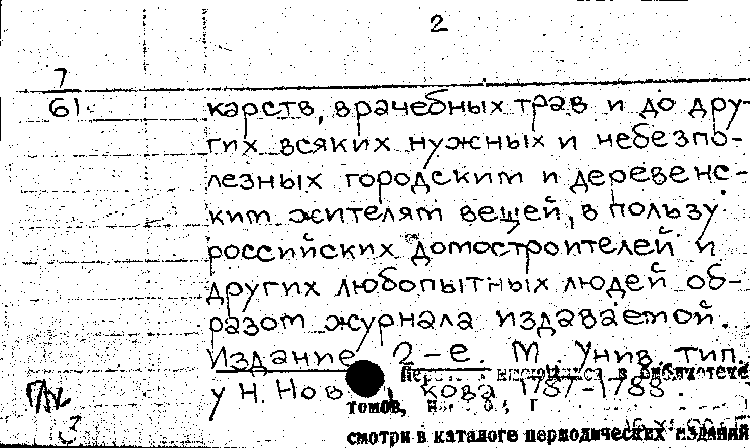 2
7
61
карств, врачебных трав и до дру-
гих всяких нужных и небезпо-
лезных городским и деревенс-
ким жителям вещей, в пользу
российских домостроителей и
других любопытных людей об-
разом журнала издаваемой.
Издание 2-е. М. Унив. тип.
имеющихся в библиотеке
у Н. Новикова 1787-1788.
томов,
смотри в каталоге периодических изданий